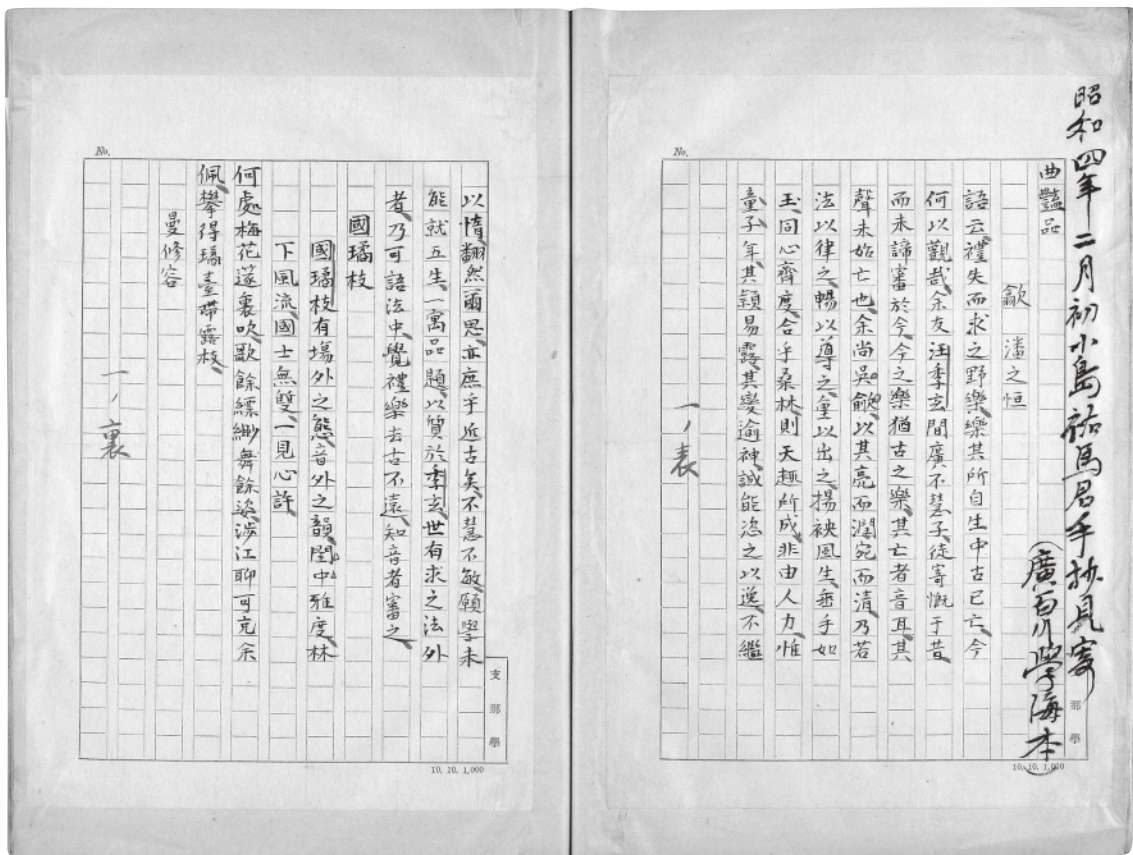 昭和四年二月初小島祐馬君手抄見寄
(廣百川學海本)
No.
曲豔品
歙　潘之恒
語云、禮失而求之野、樂、樂其所自生、中古已亡、今
何以觀哉、余友汪季玄間廣不慧子、徒寄慨于昔
而未諦審於今、今之樂猶古之樂、其亡者音耳、其
聲未始亡也、余尚吳歈、以其亮而潤、宛而清、乃若
法以律之、暢以導之、重以出之、揚袂風生、垂手如
玉、同心齊度、合乎桑林、則天趣所成、非由人力、惟
童子年、其韻易露、其變逾神、誠能恣之以逸、不繼
一ノ表
那學
10. 10. 1,000
No.
以惰、翻然爾思、亦庶乎近古矣、不慧不敏、願學未
能、就五生、一寓品題、以質於季玄、世有求之法外
者、乃可語法中、覺禮樂去古不遠、知音者審之、
國璚枝
國璚枝有塲外之態、音外之韻、閨中雅度、林
下風流、國士無雙、一見心許、
何處梅花篴裏吹、歌餘縹緲舞餘姿、涉江聊可充余
佩、攀得璚臺帶露枝、
曼修容
一ノ裏
支那學
10. 10. 1,000